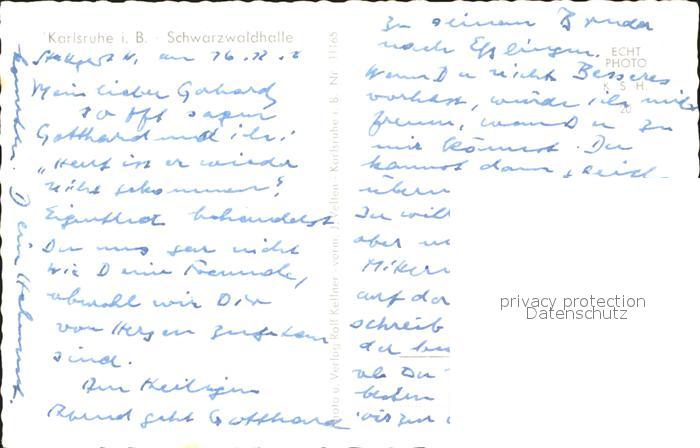 Karlsruhe i. B. - Schwarzwaldhalle
Stuttgart N, am 16.12.
Mein lieber
so oft sagen
Gotthard und ich:
"Heut ist er wieder
nicht gekommen!"
Eigentlich behandelst
Du uns gar nicht
wie Deine Freunde,
obwohl wir Dir
von Herzen zugetan
sind.
Am Heiligen
Abend geht Gotthard
zu seinem Bruder
nach Esslingen.
Wenn Du nichts Besseres
vorhast, würde ich mich
freuen, wenn Du zu
mir kommst. Du
kannst dann
übern
Du will
aber
auf da
schreib
als Du
besten
Dein Helmut.
Photo u. Verlag Rolf Kellner, vorm. J. Velten - Karlsruhe i. B. Nr. 11165
ECHT
PHOTO
K. S. H.
20
privacy protection
Datenschutz